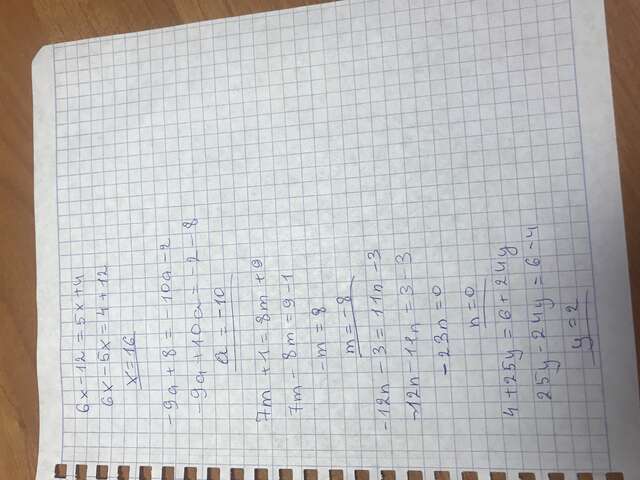 6x - 12 = 5x + 4
6x - 5x = 4 + 12
x = 16
-9a + 8 = -10a - 2
-9a + 10a = -2 - 8
a = -10
7m + 1 = 8m + 9
7m - 8m = 9 - 1
-m = 8
m = -8
-12n - 3 = 11n - 3
-12n - 11n = 3 - 3
-23n = 0
n = 0
4 + 25y = 6 + 24y
25y - 24y = 6 - 4
y = 2